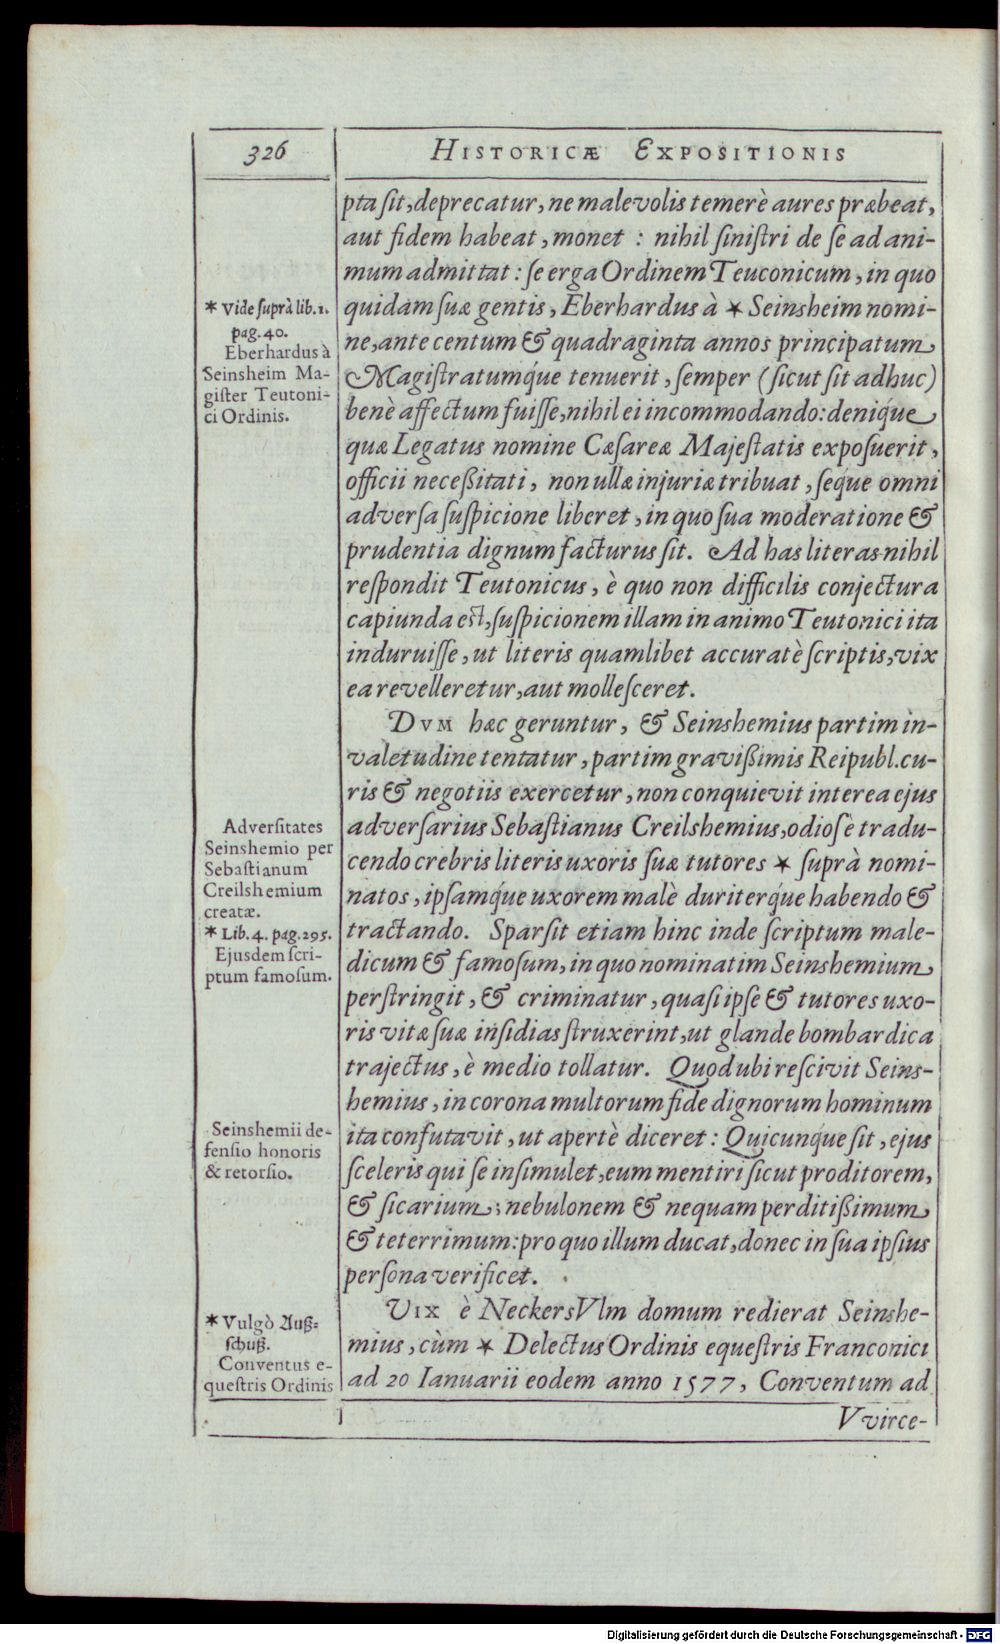 326
HISTORICÆ EXPOSITIONIS
pta ſit, deprecatur, ne malevolis temerè aures præbeat,
aut fidem habeat, monet : nihil ſiniſtri de ſe ad ani-
mum admittat : ſe erga Ordinem Teuconicum, in quo
quidam ſuæ gentis, Eberhardus à * Seinsheim nomi-
ne, ante centum & quadraginta annos principatum
Magiſtratumq́ue tenuerit, ſemper (ſicut ſit adhuc)
benè affectum fuiſſe, nihil ei incommodando: deniq́ue
quæ Legatus nomine Cæſareæ Majeſtatis expoſuerit,
officii neceßitati, non ullæ injuriæ tribuat, ſeq́ue omni
adverſa ſuſpicione liberet, in quo ſua moderatione &
prudentia dignum facturus ſit. Ad has literas nihil
reſpondit Teutonicus, è quo non difficilis conjectura
capiunda eſt, ſuſpicionem illam in animo Teutonici ita
induruiſſe, ut literis quamlibet accuratè ſcriptis, vix
ea revelleretur, aut molleſceret.
DVM hæc geruntur, & Seinshemius partim in-
valetudine tentatur, partim gravißimis Reipubl. cu-
ris & negotiis exercetur, non conquievit interea ejus
adverſarius Sebaſtianus Creilshemius, odioſè tradu-
cendo crebris literis uxoris ſuæ tutores * ſuprà nomi-
natos, ipſamq́ue uxorem malè duriterq́ue habendo &
tractando. Sparſit etiam hinc inde ſcriptum male-
dicum & famoſum, in quo nominatim Seinshemium
perſtringit, & criminatur, quaſi ipſe & tutores uxo-
ris vitæ ſuæ inſidias ſtruxerint, ut glande bombardica
trajectus, è medio tollatur. Quod ubi reſcivit Seins-
hemius, in corona multorum fide dignorum hominum
ita confutavit, ut apertè diceret : Quicunque ſit, ejus
ſceleris qui ſe inſimulet, eum mentiri ſicut proditorem,
& ſicarium; nebulonem & nequam perditißimum
& teterrimum: pro quo illum ducat, donec in ſua ipſius
perſona verificet.
VIX è NeckersVlm domum redierat Seinshe-
mius, cùm * Delectus Ordinis equeſtris Franconici
ad 20 Ianuarii eodem anno 1577, Conventum ad
Vvirce-
* Vide ſuprà lib. 1.
pag. 40.
Eberhardus à
Seinsheim Ma-
giſter Teutoni-
ci Ordinis.
Adverſitates
Seinshemio per
Sebaſtianum
Creilshemium
creatæ.
* Lib. 4. pag. 295.
Ejusdem ſcri-
ptum famoſum.
Seinshemii de-
fenſio honoris
& retorſio.
* Vulgò Auß-
ſchuß.
Conventus e-
queſtris Ordinis
Digitalisierung gefördert durch die Deutsche Forschungsgemeinschaft - DFG